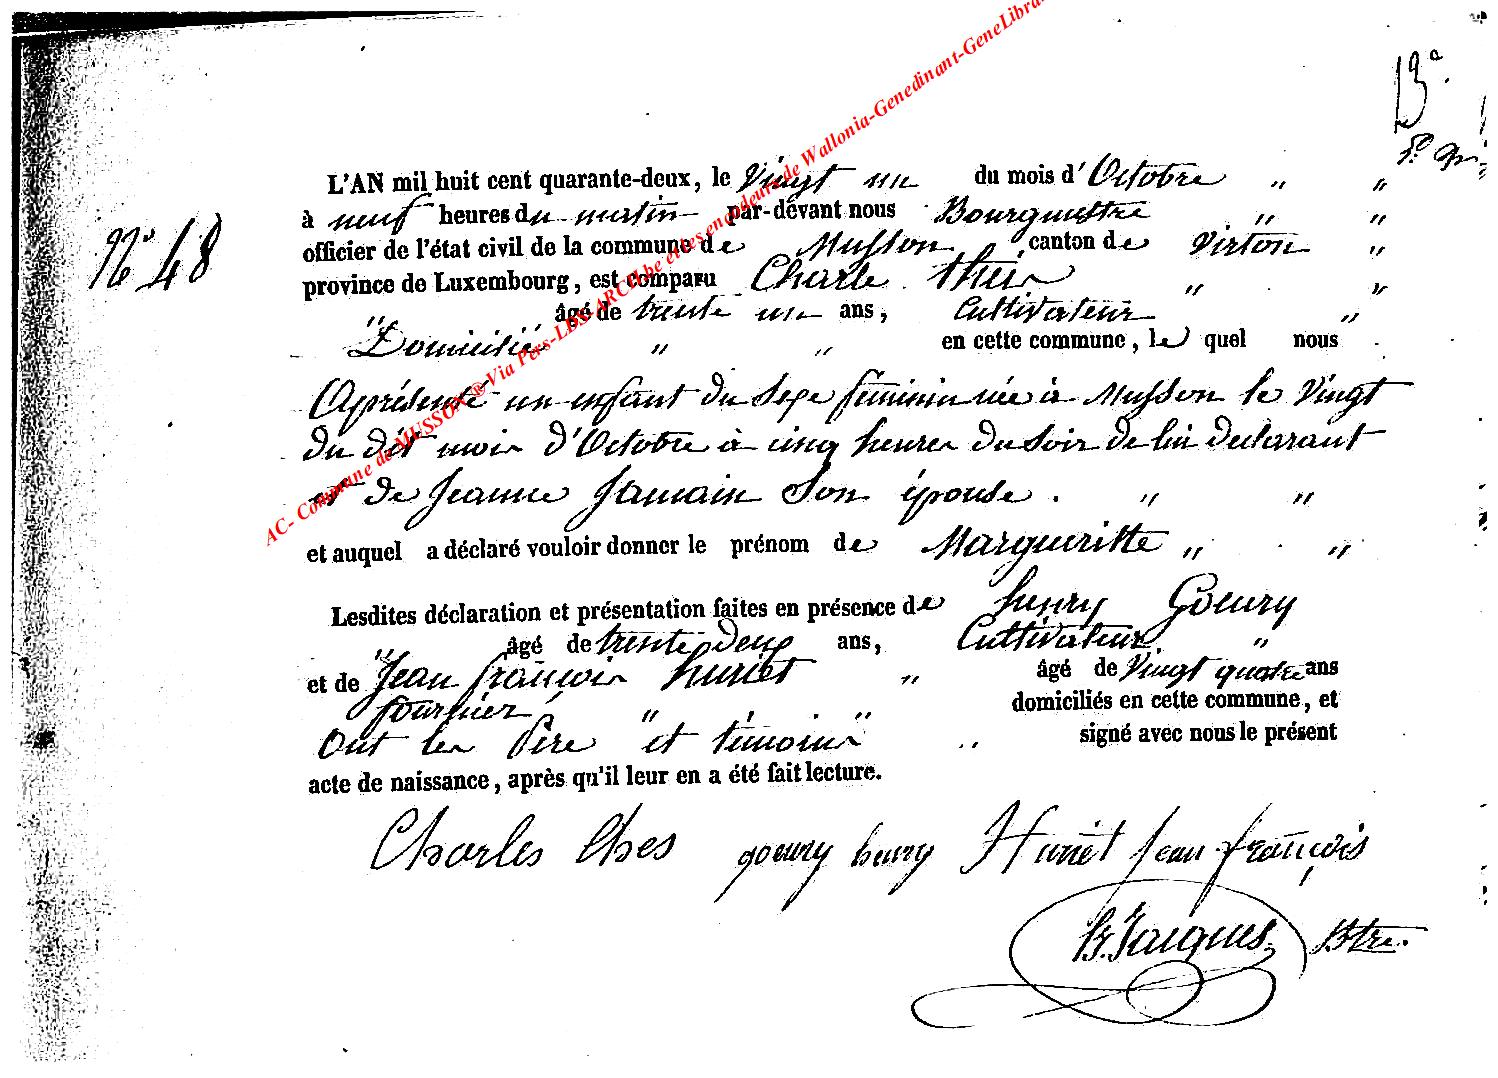 13e
N° 48
L'AN mil huit cent quarante-deux, le Vingt un du mois d'Octobre " "
à neuf heures du matin par-devant nous Bourgmestre " "
officier de l'état civil de la commune de Musson canton de Virton "
province de Luxembourg, est comparu Charle theis " "
" âgé de trente un ans, Cultivateur "
Domicilié " " en cette commune, le quel nous
Aprésenté un enfant du sexe féminin née à Musson le Vingt
du dit mois d'Octobre à cinq heures du soir de lui declarant
et de Jeanne Jamain Son épouse. " "
et auquel a déclaré vouloir donner le prénom de Margueritte " "
Lesdites déclaration et présentation faites en présence de henry Goeury
" âgé de trente deux ans, Cultivateur "
et de Jean françois huriet " âgé de Vingt quatre ans
domiciliés en cette commune, et
Ont les Père et témoins signé avec nous le présent
acte de naissance, après qu'il leur en a été fait lecture.
Charles thes goeury henry Huriet Jean françois
Jacques Btre.
AC- Commune de MUSSON ® Via Pers-LDS-ARCH.be et les encodeurs de Wallonia-Genedinant-GeneLibra